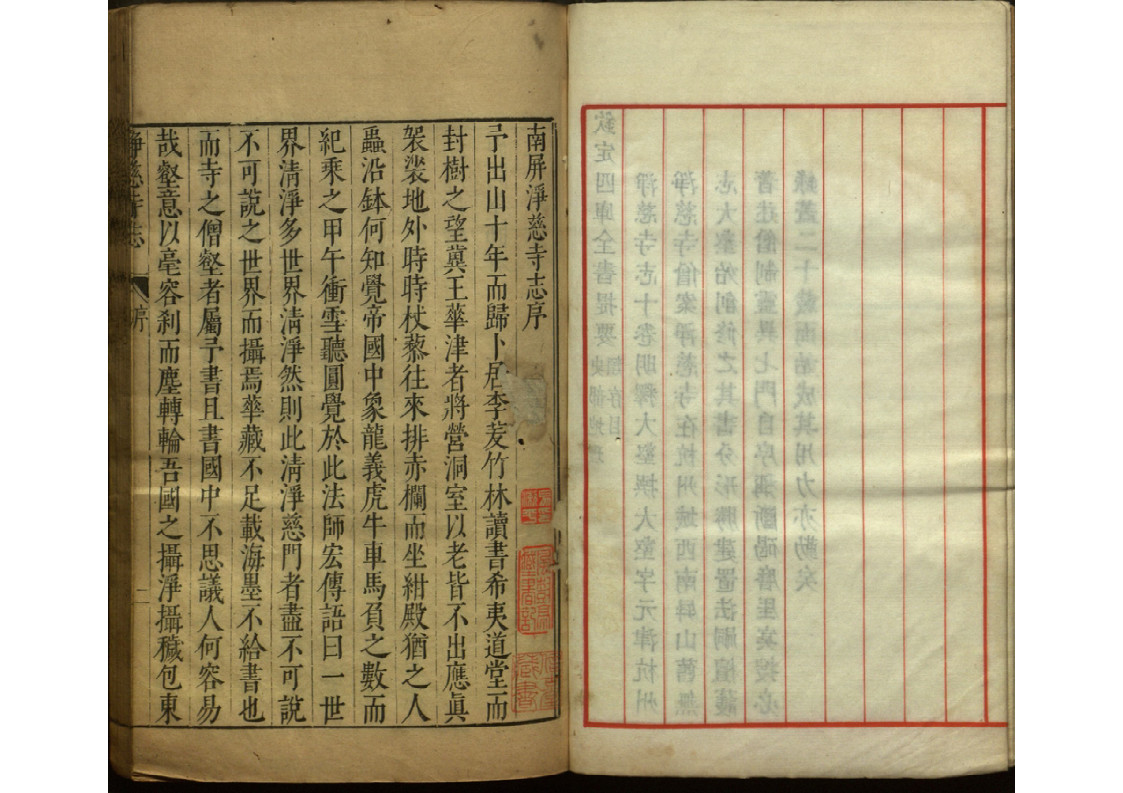 欽定四庫全書提要
淨慈寺志十卷明釋大壑撰大壑字元津杭州
淨慈寺僧案淨慈寺在杭州城西南屏山舊無
志大壑始創修之其書分形勝建置法嗣檀護
著述僧制靈異七門自序謂斷碣磨崖冥搜必
錄蓋二十載而始成其用力亦勤矣
南屏淨慈寺志序
予出山十年而歸卜居李茇竹林讀書希夷道堂而
封樹之望冀王華津者將營洞室以老皆不出應眞
袈裟地外時時杖藜往來排赤欄而坐紺殿猶之人
蝨沿鉢何知覺帝國中象龍義虎牛車馬負之數而
紀乘之甲午衝雪聽圓覺於此法師宏傳語曰一世
界清淨多世界清淨然則此清淨慈門者盡不可說
不可說之世界而攝焉華藏不足載海墨不給書也
而寺之僧壑者屬予書且書國中不思議人何容易
哉壑意以毫容刹而塵轉輪吾國之攝淨攝穢包東
淨慈寺志 序